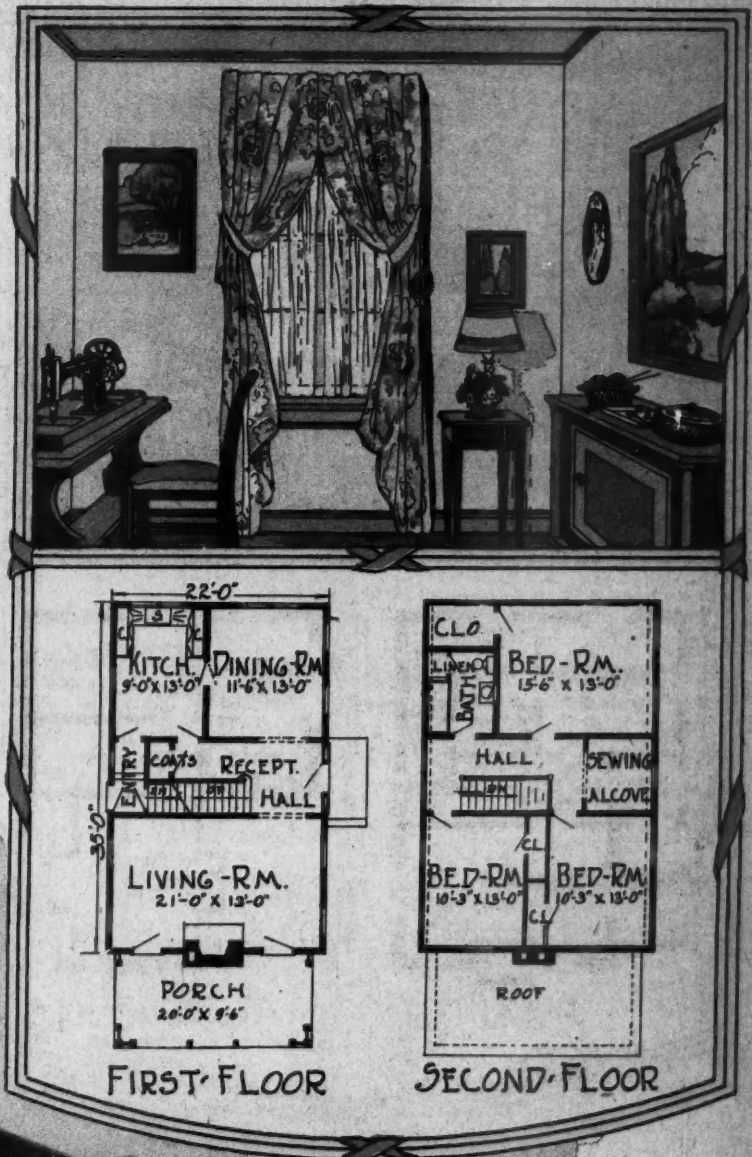 22'-0"
35'-0"
S
C
C
KITCH.
9'-0" X 13'-0"
DINING-RM
11'-6" X 13'-0"
ENTRY
COATS
RECEPT.
HALL
LIVING-RM.
21'-0" X 13'-0"
PORCH
20'-0" X 9'-6"
FIRST-FLOOR
CLO.
LINEN
BATH
BED-RM.
15'-6" X 13'-0"
HALL
SEWING
ALCOVE
DN
CL
BED-RM
10'-3" X 13'-0"
BED-RM
10'-3" X 13'-0"
CL
ROOF
SECOND-FLOOR